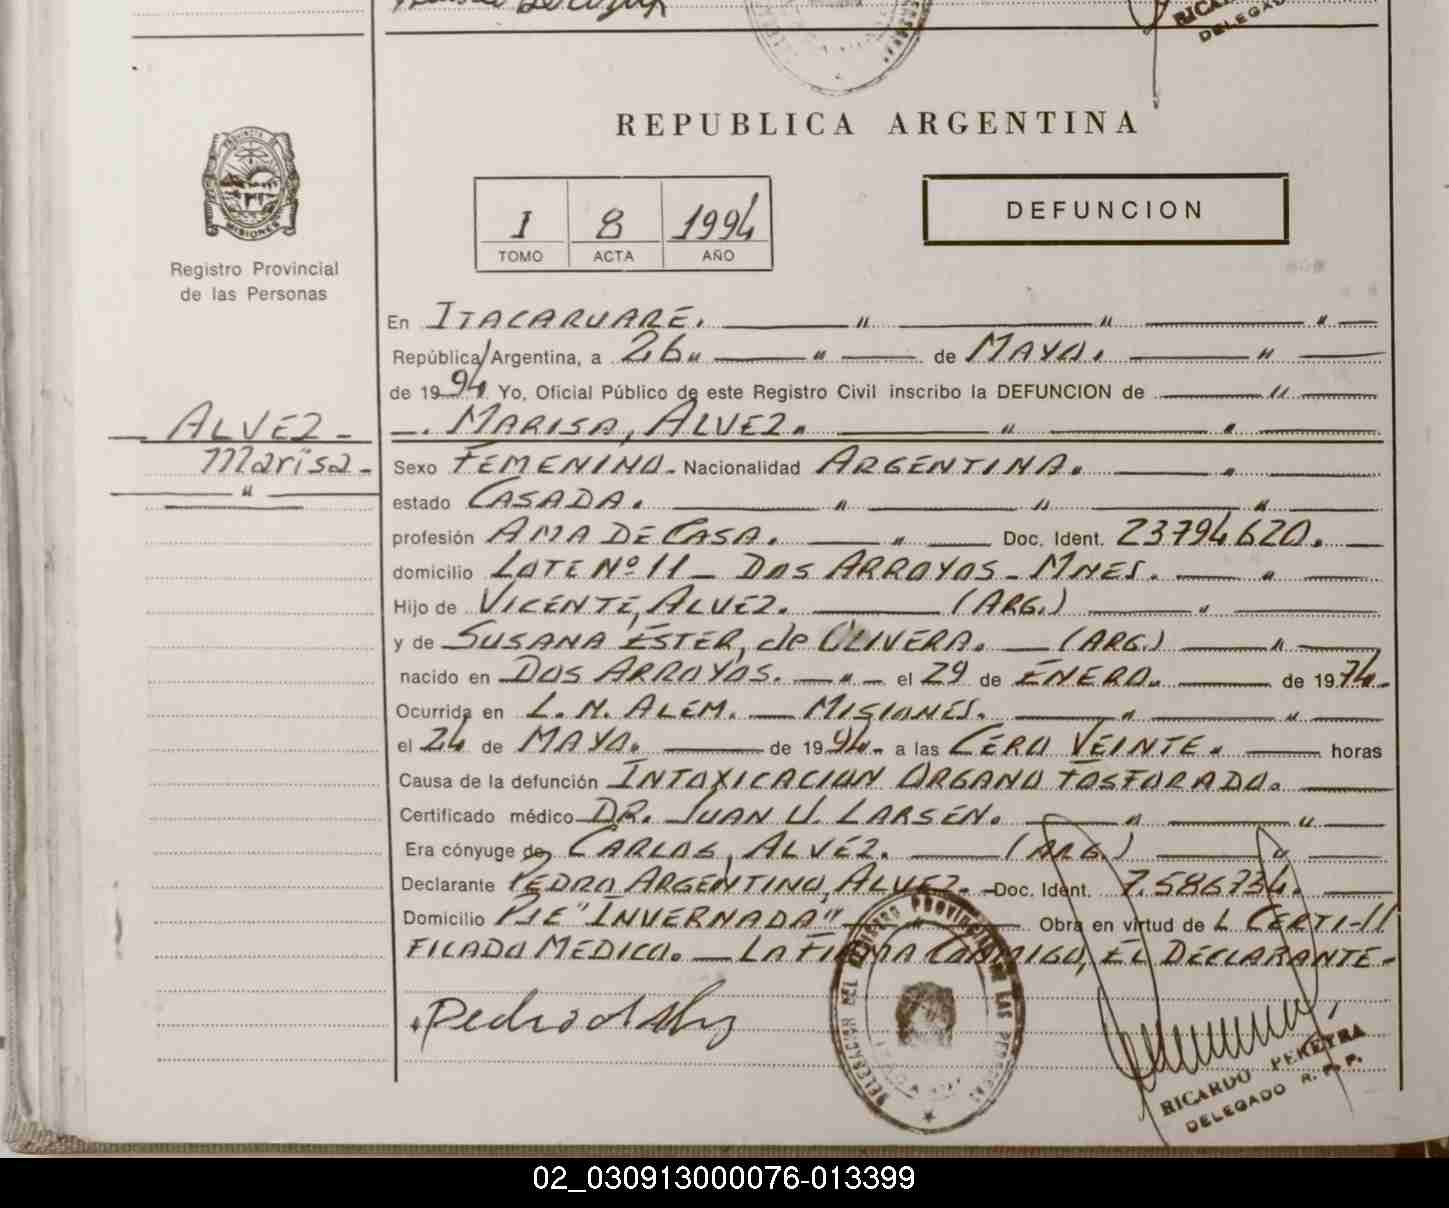 RICA
DELEGAD
REPUBLICA ARGENTINA
PROVINCIA DE
MISIONES
Registro Provincial
de las Personas
I 8 1994
TOMO ACTA AÑO
DEFUNCION
En ITACARUARÉ. " " "
República Argentina, a 26 " " de MAYO. "
de 1994 Yo, Oficial Público de este Registro Civil inscribo la DEFUNCION de "
ALVEZ - . MARISA, ALVEZ. "
Marisa - Sexo FEMENINO. Nacionalidad ARGENTINA. "
" estado CASADA. " " "
profesión AMA DE CASA. " Doc. Ident. 23794620.
domicilio LOTE Nº 11 - DOS ARROYOS - MNES. "
Hijo de VICENTE, ALVEZ. (ARG.) "
y de SUSANA ESTER, de OLIVERA. (ARG.) "
nacido en DOS ARROYOS. " el 29 de ENERO. de 1974.
Ocurrida en L. N. ALEM. — MISIONES. " "
el 24 de MAYO. de 1994. a las CERO VEINTE. horas
Causa de la defunción INTOXICACION ORGANO FOSFORADO.
Certificado médico DR. JUAN U. LARSEN. " "
Era cónyuge de CARLOS, ALVEZ. (ARG.) "
Declarante PEDRO ARGENTINO, ALVEZ. Doc. Ident. 7.586734.
Domicilio PJE "INVERNADA" Obra en virtud de L CERTI-//
FICADO MEDICO. — LA FIRMA CONMIGO, EL DECLARANTE-
Pedro A Alvez
DELEGACION DEL REGISTRO PROVINCIAL DE LAS PERSONAS
RICARDO PEREYRA
DELEGADO R. P. P.
02_030913000076-013399